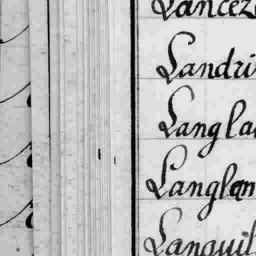 Lancez
Landri
Langla
Langlan
Languil